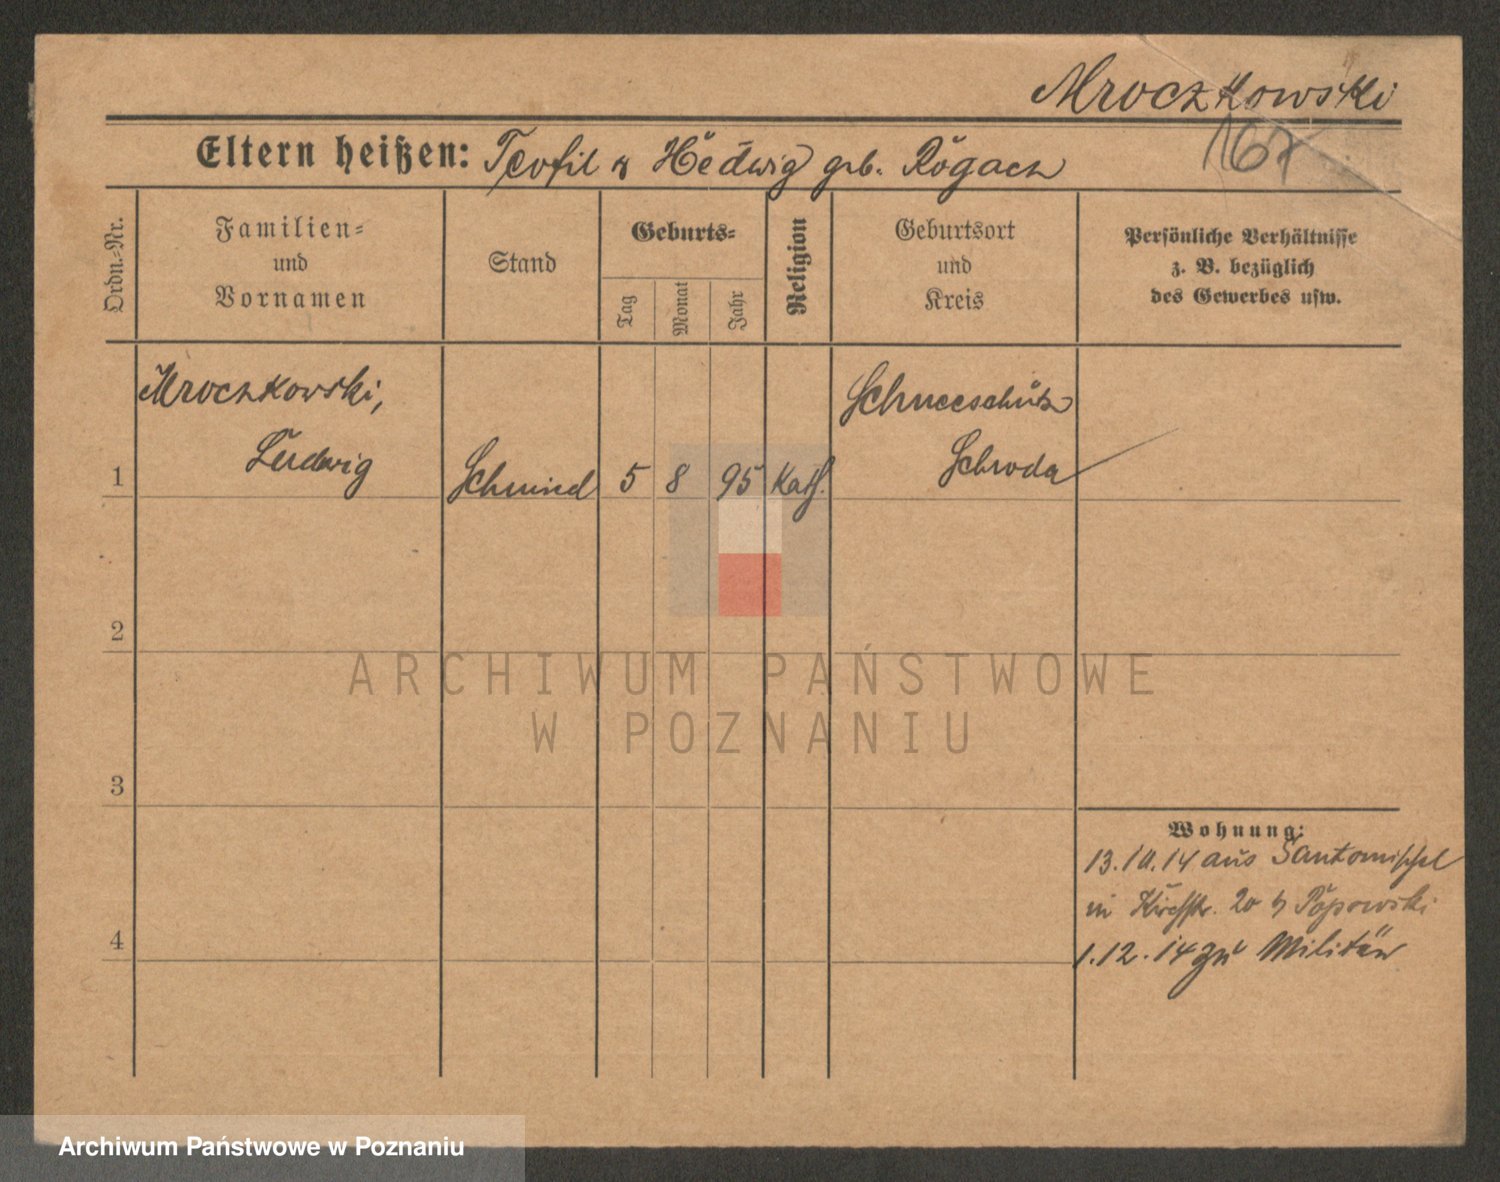 Mroczkowski
167
Eltern heißen: Teofil u Hedwig geb. Rogacz
Ordn.-Nr.
Familien-
und
Vornamen
Stand
Geburts-
Tag
Monat
Jahr
Religion
Geburtsort
und
Kreis
Persönliche Verhältnisse
z. B. bezüglich
des Gewerbes usw.
Mroczkowski,
Ludwig
1
Schmied
5
8
95
Kath.
Schneeschütz
Schroda
2
3
4
Wohnung:
13.10.14 aus Santomischel
in Kirchstr. 20 b Popowski
1.12.14 zu Militär
ARCHIWUM PAŃSTWOWE
W POZNANIU
Archiwum Państwowe w Poznaniu